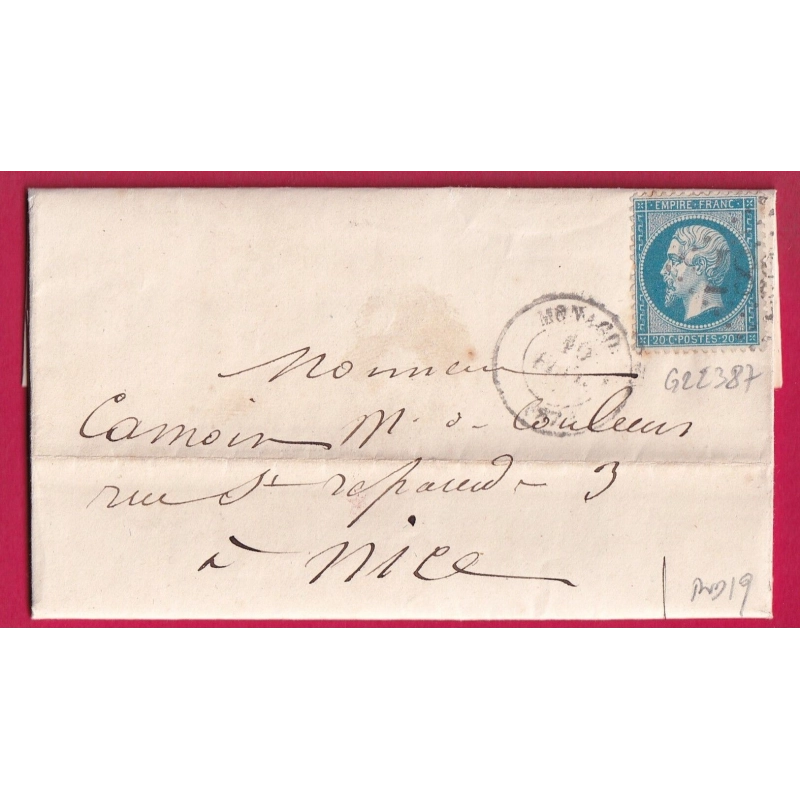 EMPIRE · FRANC ·
20 C · POSTES · 20 C
MONACO
G22387
Monsieur
Camoin Md de Couleurs
rue St reparade 3
à Nice